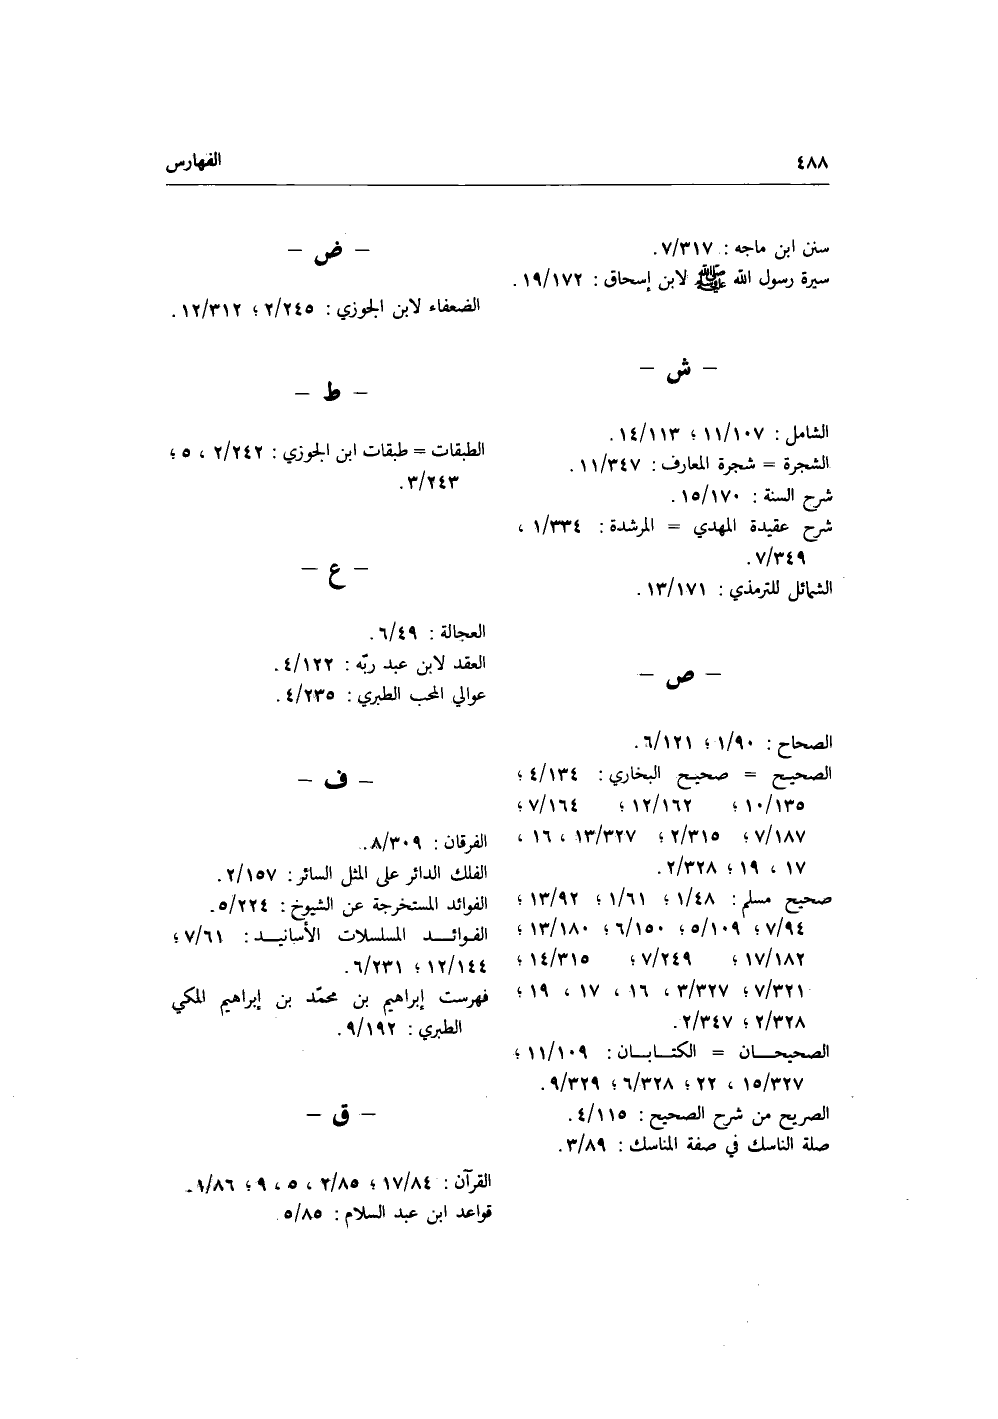 ٤٨٨
الفهارس
سنن ابن ماجه : ٧/٣١٧.
سيرة رسول الله ﷺ لابن إسحاق : ١٩/١٧٢.
– ش –
الشامل : ١١/١٠٧ ؛ ١٤/١١٣.
الشجرة = شجرة المعارف : ١١/٣٤٧.
شرح السنة : ١٥/١٧٠.
شرح عقيدة المهدي = المرشدة : ١/٣٣٤ ،
٧/٣٤٩.
الشمائل للترمذي : ١٣/١٧١.
– ص –
الصحاح : ١/٩٠ ؛ ٦/١٢١.
الصحيح = صحيح البخاري : ٤/١٣٤ ؛
١٠/١٣٥ ؛ ١٢/١٦٢ ؛ ٧/١٦٤ ؛
٧/١٨٧ ؛ ٢/٣١٥ ؛ ١٣/٣٢٧ ، ١٦ ،
١٧ ، ١٩ ؛ ٢/٣٢٨.
صحيح مسلم : ١/٤٨ ؛ ١/٦١ ؛ ١٣/٩٢ ؛
٧/٩٤ ؛ ٥/١٠٩ ؛ ٦/١٥٠ ؛ ١٣/١٨٠ ؛
١٧/١٨٢ ؛ ٧/٢٤٩ ؛ ١٤/٣١٥ ؛
٧/٣٢١ ؛ ٣/٣٢٧ ، ١٦ ، ١٧ ، ١٩ ؛
٢/٣٢٨ ؛ ٢/٣٤٧.
الصحيحان = الكتابان : ١١/١٠٩ ؛
١٥/٣٢٧ ، ٢٢ ؛ ٦/٣٢٨ ؛ ٩/٣٢٩.
الصريح من شرح الصحيح : ٤/١١٥.
صلة الناسك في صفة المناسك : ٣/٨٩.
– ض –
الضعفاء لابن الجوزي : ٢/٢٤٥ ؛ ١٢/٣١٢.
– ط –
الطبقات = طبقات ابن الجوزي : ٢/٢٤٢ ، ٥ ؛
٣/٢٤٣.
– ع –
العجالة : ٦/٤٩.
العقد لابن عبد ربّه : ٤/١٢٢.
عوالي المحب الطبري : ٤/٢٣٥.
– ف –
الفرقان : ٨/٣٠٩.
الفلك الدائر على المثل السائر : ٢/١٥٧.
الفوائد المستخرجة عن الشيوخ : ٥/٢٢٤.
الفوائد المسلسلات الأسانيد : ٧/٦١ ؛
١٢/١٤٤ ؛ ٦/٢٣١.
فهرست إبراهيم بن محمّد بن إبراهيم المكي
الطبري : ٩/١٩٢.
– ق –
القرآن : ١٧/٨٤ ؛ ٢/٨٥ ، ٥ ، ٩ ؛ ١/٨٦.
قواعد ابن عبد السلام : ٥/٨٥.